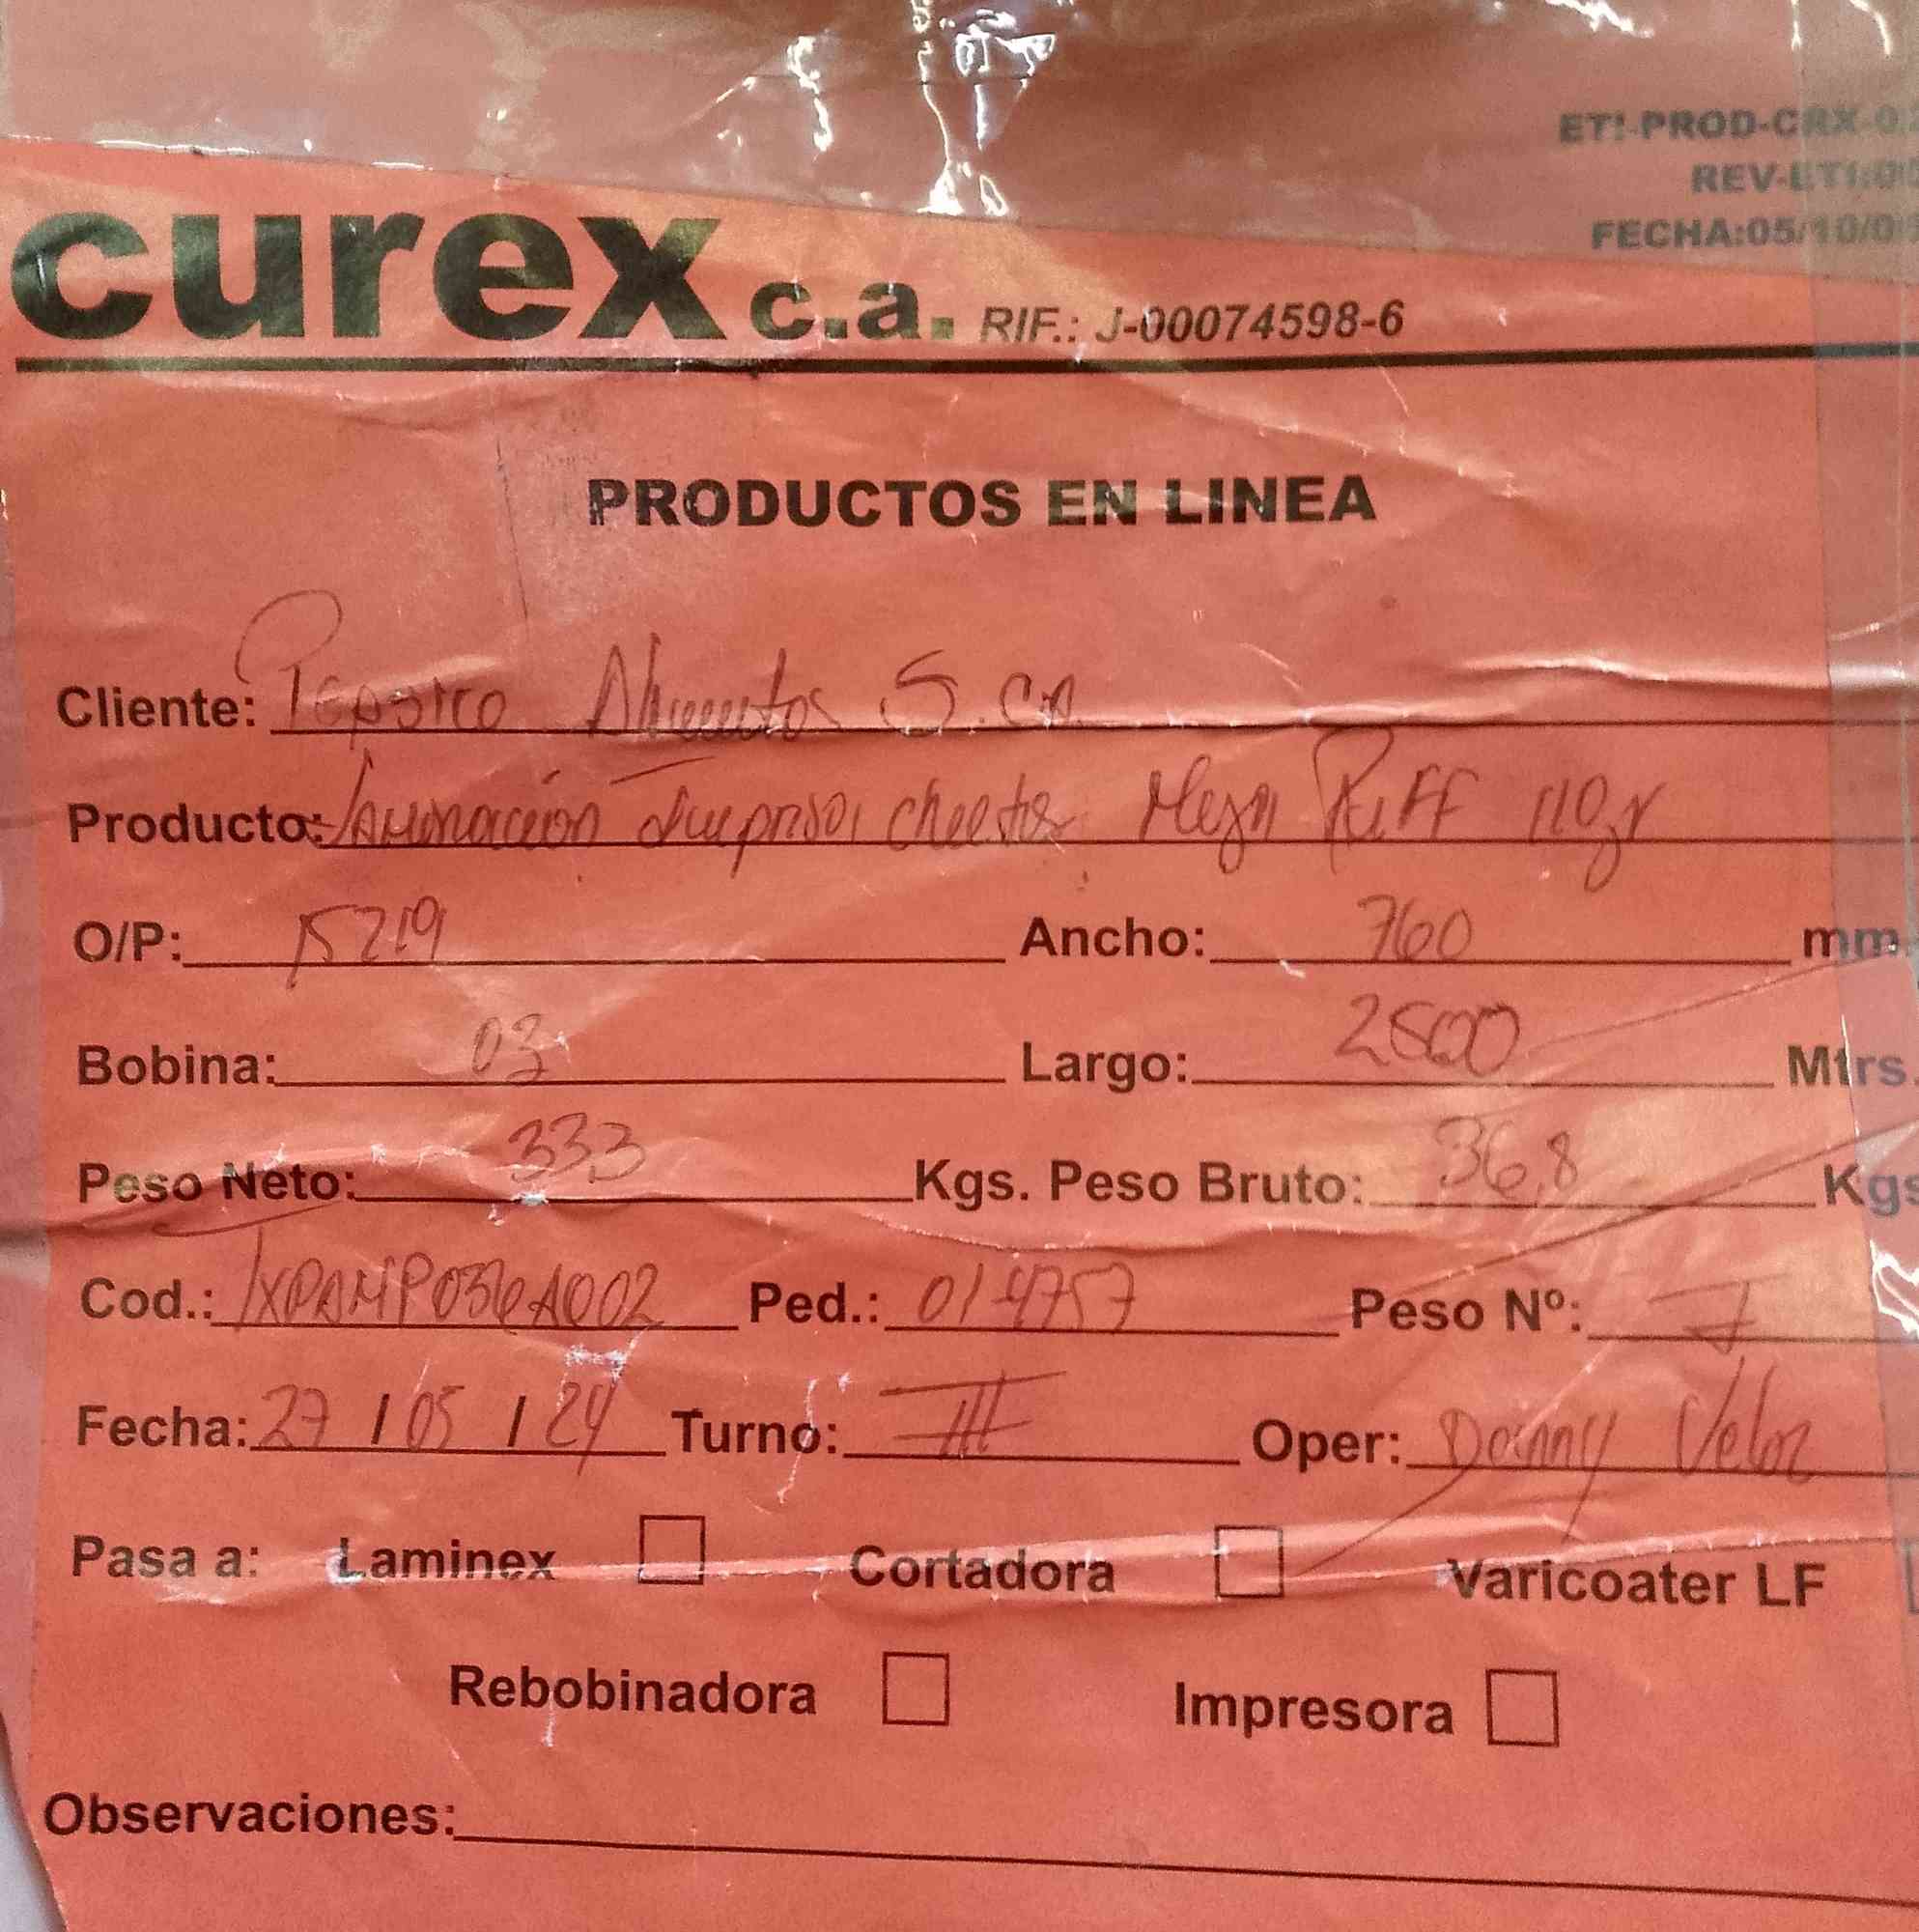 ETI-PROD-CRX-0
REV-ETI:0
FECHA:05/10/0
curex c.a. RIF.: J-00074598-6
PRODUCTOS EN LINEA
Cliente: Pepsico Alimentos S.ca.
Producto: Laminación Impresa, cheetos Mega Puff 110gr
O/P: 15219 Ancho: 760 mm.
Bobina: 03 Largo: 2500 Mtrs.
Peso Neto: 33,3 Kgs. Peso Bruto: 36,8 Kgs
Cod.: Ped.: 014757 Peso Nº: I
Fecha: 27 / 05 / 24 Turno: III Oper: Danny Veloz
Pasa a: Laminex Cortadora Varicoater LF
Rebobinadora Impresora
Observaciones: